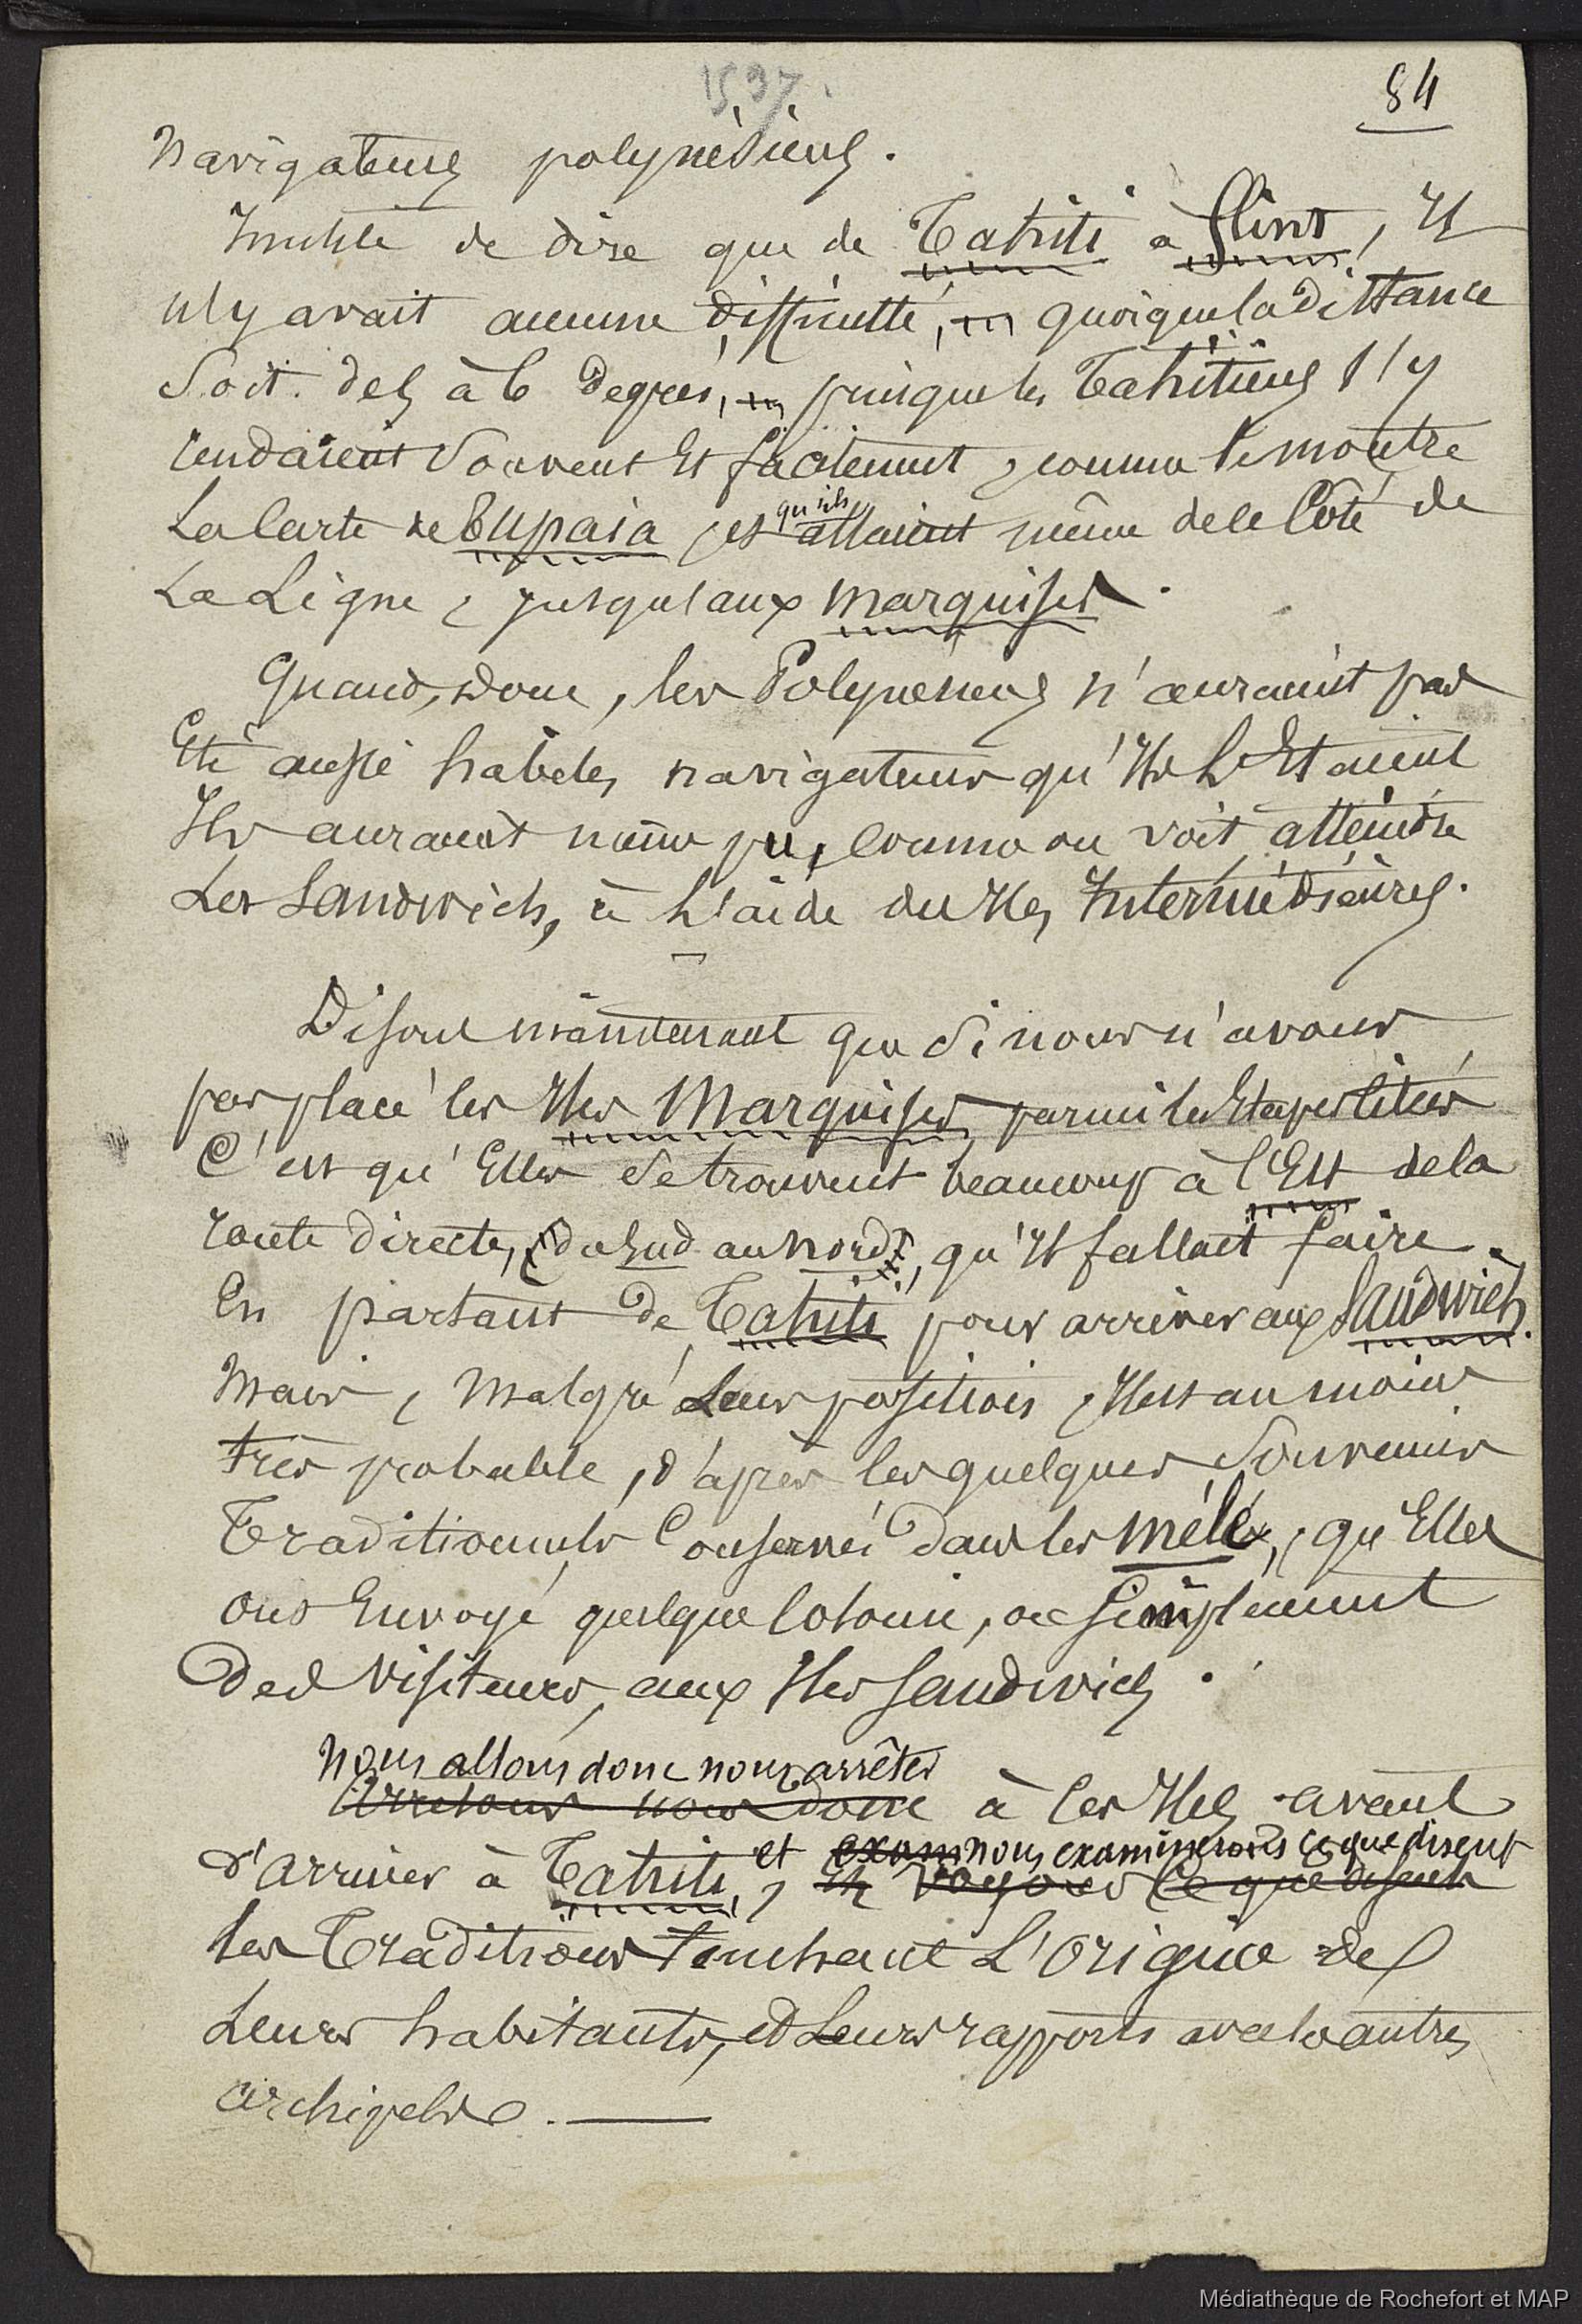 1597.
84
navigateurs polynésiens.
Inutile de dire que de Tahiti à Flint, Il
n'y avait aucune difficulté, quoique la distance
Soit de 5 à 6 degrés, puisque les Tahitiens s'y
rendaient Souvent Et facilement, comme le montre
La Carte de Tupaia, et qu'ils allaient même de ce Côté de
La Ligne, jusqu'aux Marquises.
Quand, donc, les Polynésiens n'auraient pas
Eté aussi habiles navigateurs qu'Ils L'Etaient
Ils auraient même pu, comme on voit, atteindre
Les Sandwich, à L'aide des Iles Intermédiaires.
Disons maintenant que Si nous n'avons
pas placé les Iles Marquises parmi les Etapes citées
C'est qu'Elles Se trouvent beaucoup à l'Est de la
route directe, (du Sud au nord), qu'Il fallait faire
En partant de Tahiti pour arriver aux Sandwich.
Mais, Malgré Leur position, Il est au moins
très probable, d'après les quelques Souvenirs
Traditionnels Conservés dans les mélé, qu'Elles
ont Envoyé quelque Colonie, ou Simplement
Des Visiteurs, aux Iles Sandwich.
Nous allons donc nous arrêter
Arrêtons nous donc à Ces Iles avant
et exam nous examinerons ce que disent
d'arriver à Tahiti, Et Voyons Ce que disent
les Traditions Touchant L'Origine de
Leurs habitants, et Leurs rapports avec les autres
archipels.
Médiathèque de Rochefort et MAP